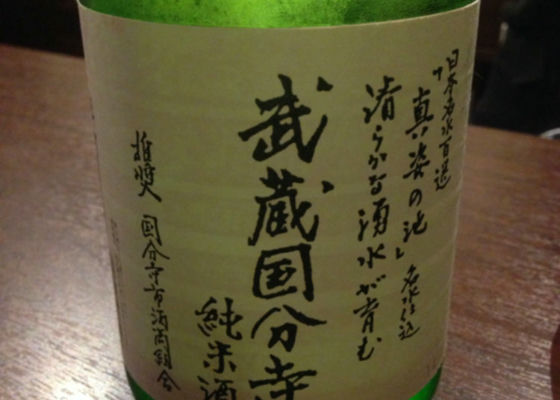 日本名水百選
「真姿の池」名水仕込
清らかな湧水が育む
武蔵国分寺
純米酒
推奨 国分寺市酒商組合